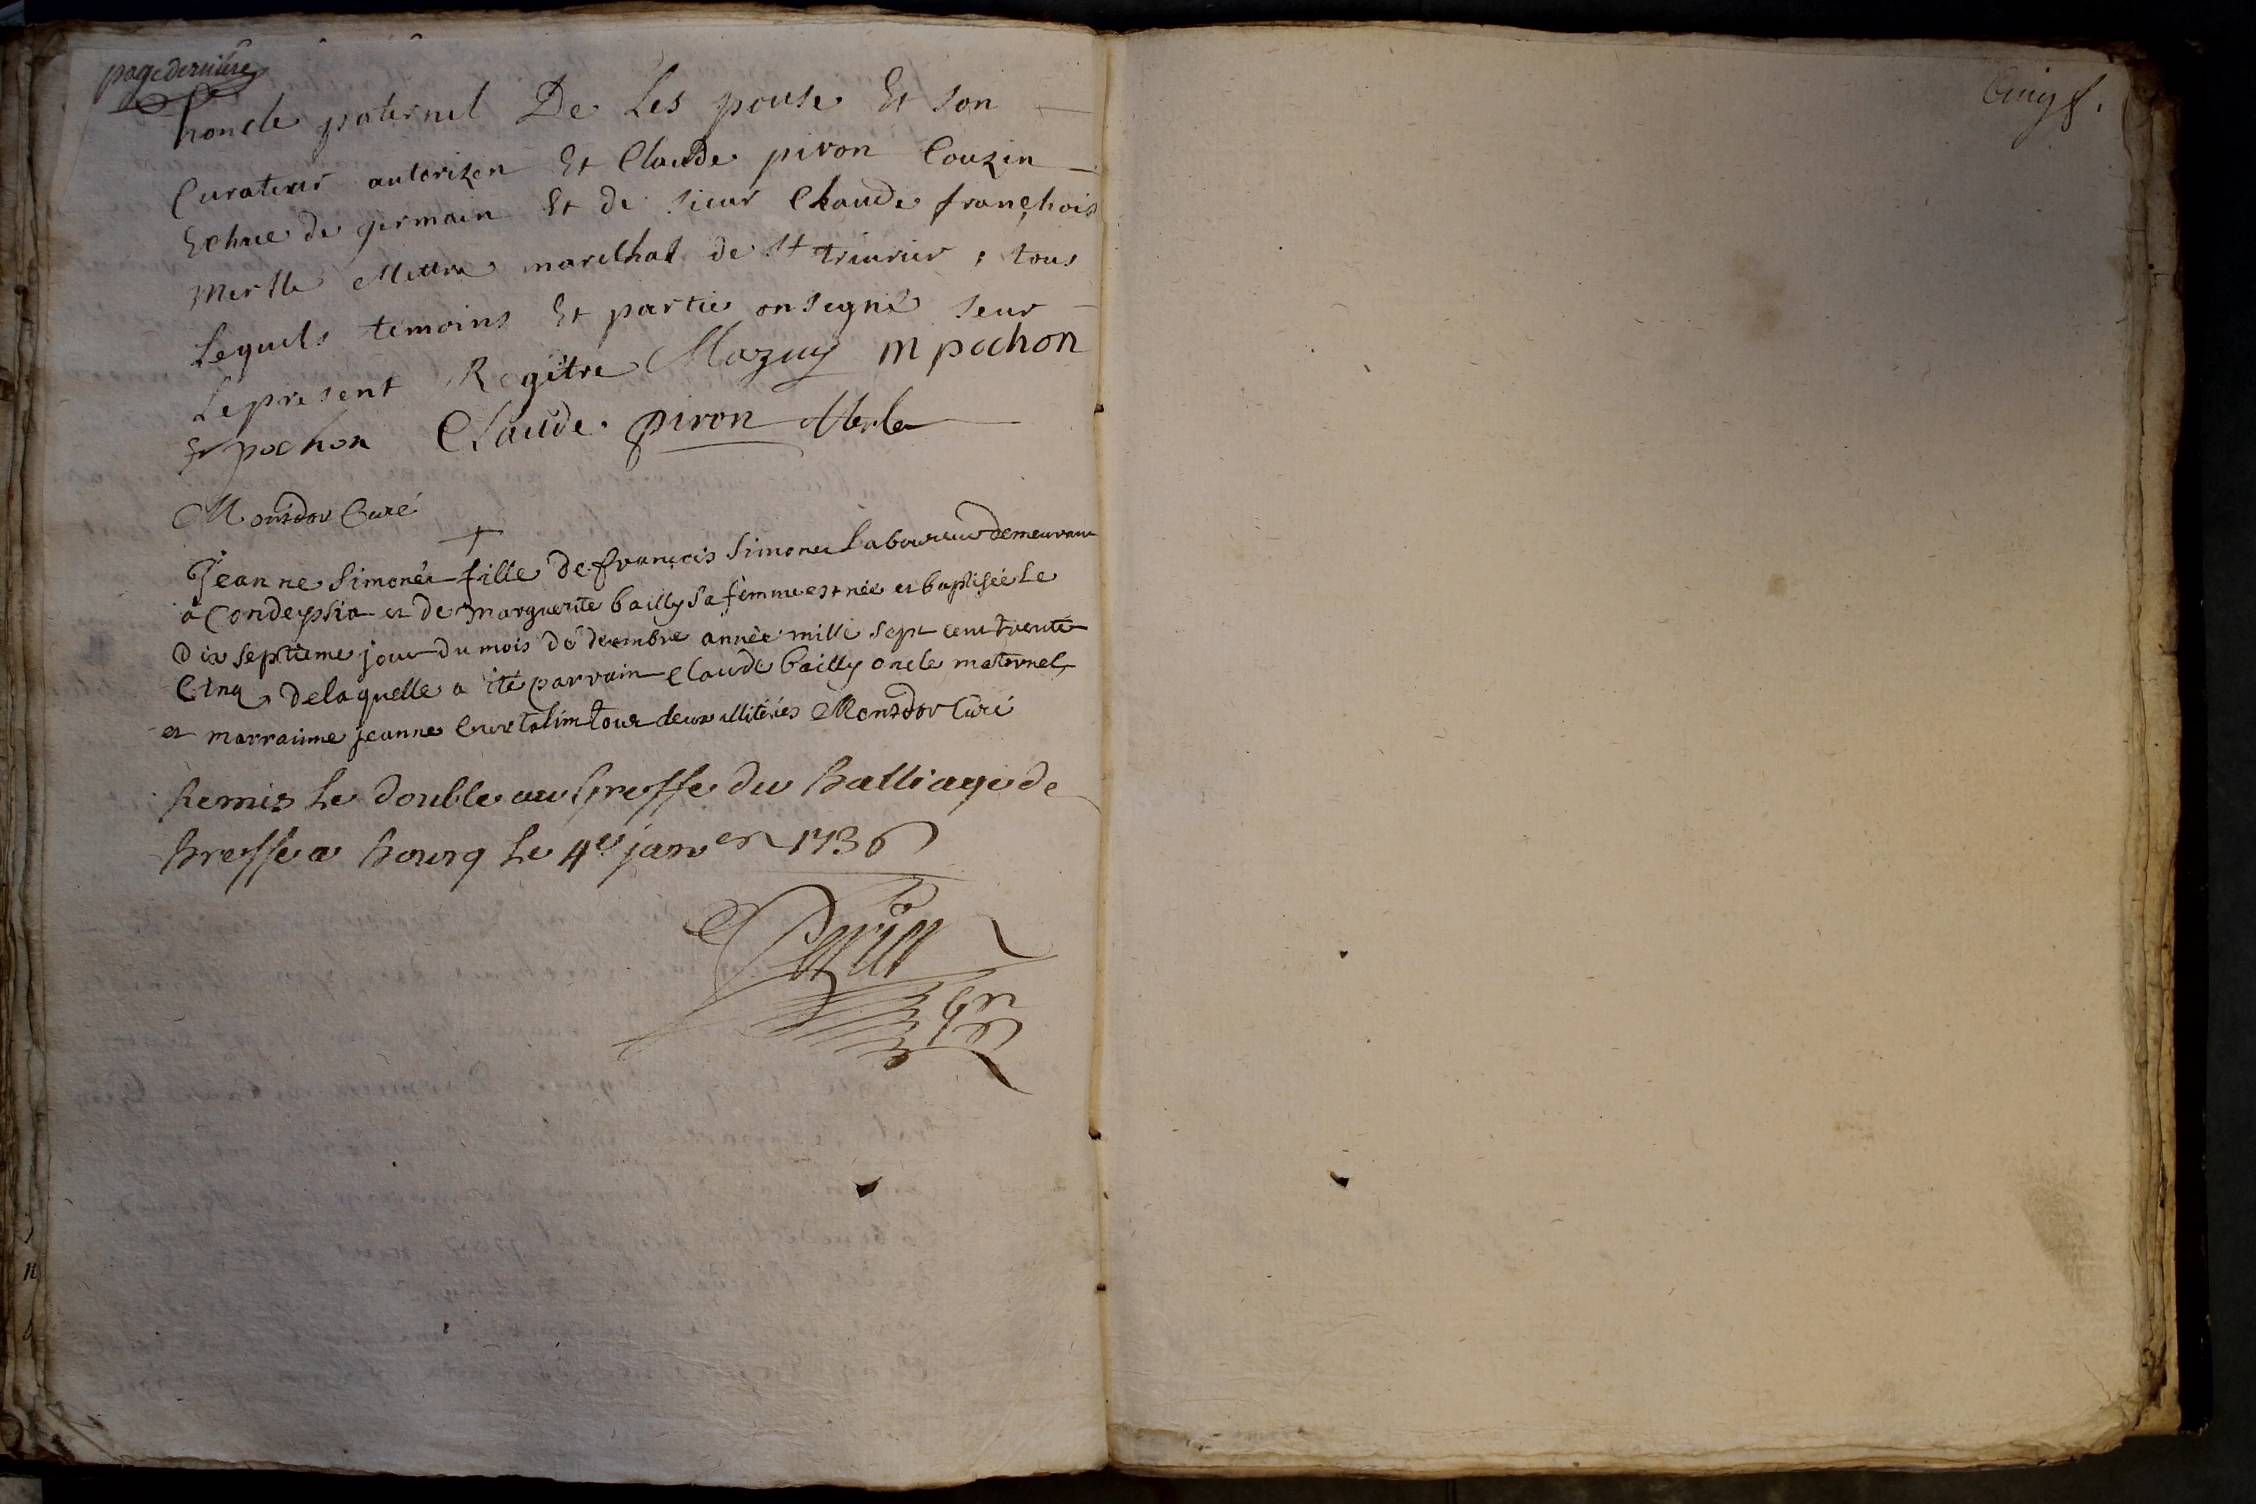 page derniére
honcle paternel De Les pouse Et son
Curateur autorizen Et Claude piron Couzin
de germain Et de sieur Claude françhois
Merlle Mettre marelhal de st trivrier ; tous
Lequels temoins Et partie onsegné seur
Lepresent Regitre Mazuy m pochon
fr pochon Claude piron Merle
Monsdor Curé
Jeanne Simonét fille de françois Simonet Laboureur demeurant
a Condeysia et de marguerite bailly sa femme est née et baptisée Le
dix septieme jour du mois de decembre année mille sept cent trente
Cinq, delaquelle a ité parrain Claude bailly oncle maternel,
et marrainne jeanne tour deux illitérés Monsdor Curé
Remis le double au Greffe du balliage de
bresse a bourg le 4e janver 1736